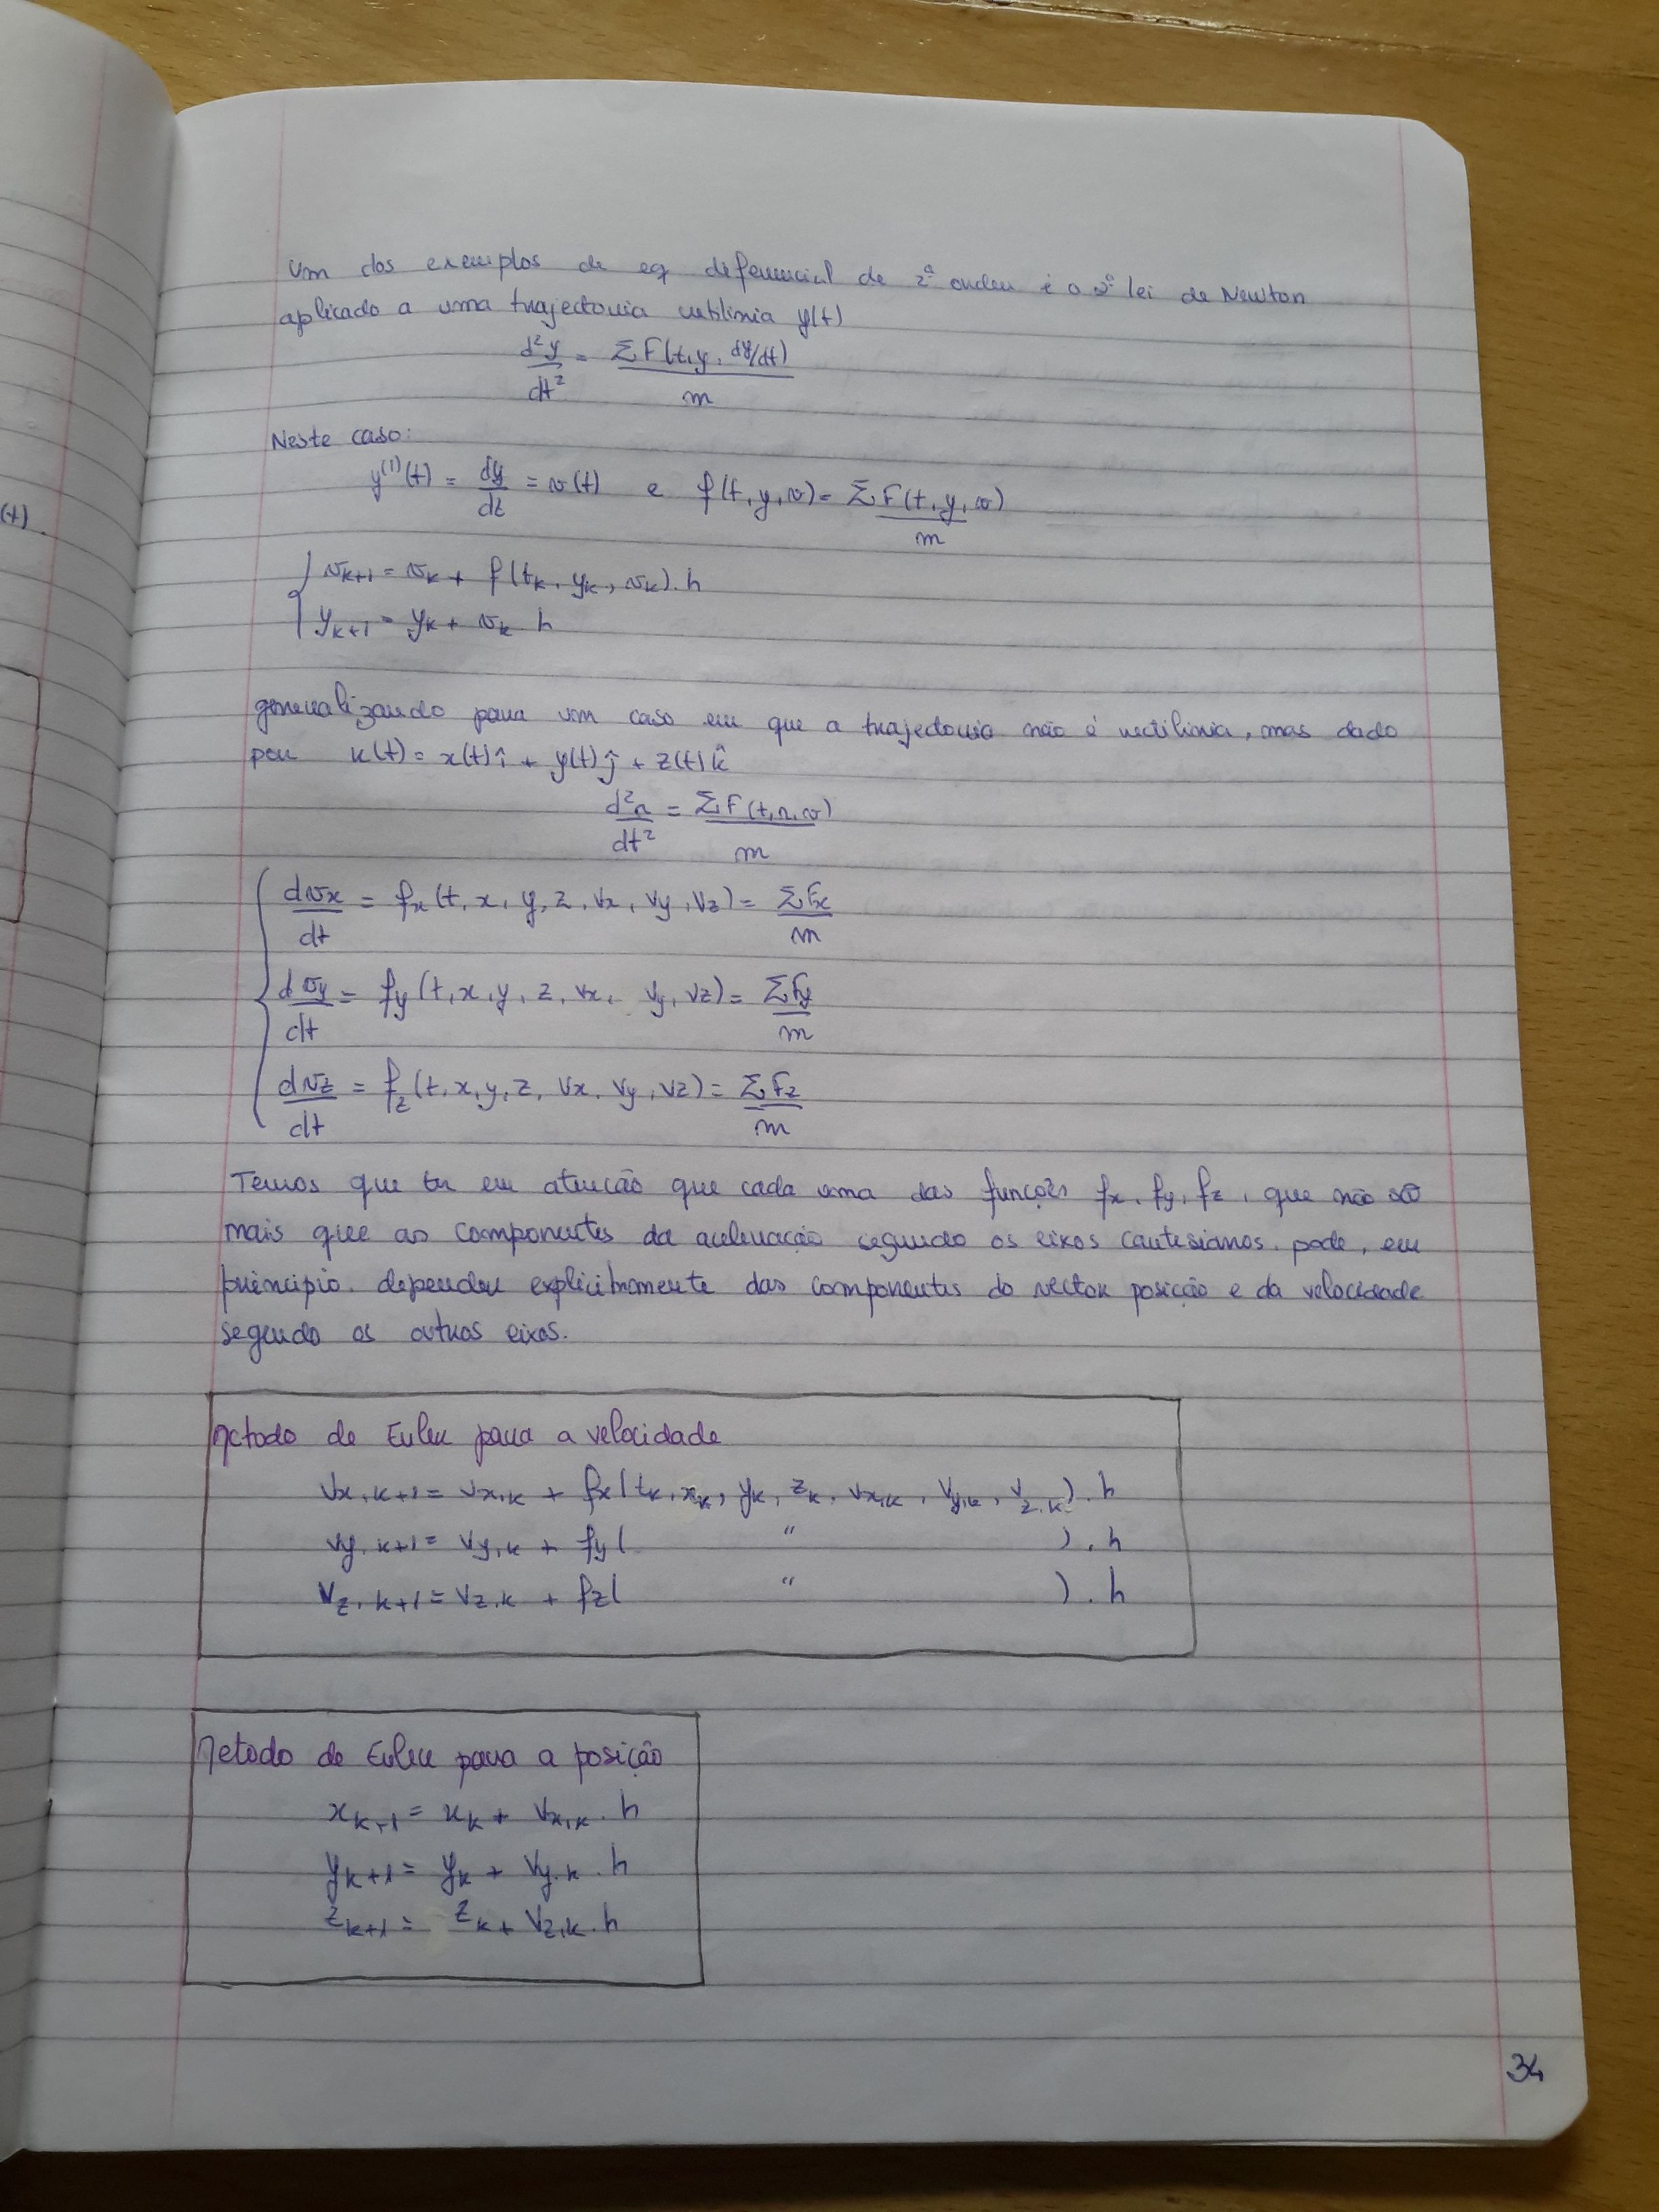 (t).
Um dos exemplos de eq diferencial de 2ª ordem é a 2ª lei de Newton
aplicado a uma trajectoria retilinia y(t)
d²y/dt² = ΣF(t,y, dy/dt)/m
Neste caso:
y⁽¹⁾(t) = dy/dt = v(t) e f(t,y,v) = ΣF(t,y,v)/m
v_{k+1} = v_k + f(t_k, y_k, v_k).h
y_{k+1} = y_k + v_k h
generalizando para um caso em que a trajectoria não é rectilinia, mas dado
por r(t) = x(t)î + y(t)ĵ + z(t)k̂
d²r/dt² = ΣF(t,r,v)/m
dvx/dt = fx(t, x, y, z, vx, vy, vz) = ΣFx/m
dvy/dt = fy(t, x, y, z, vx, vy, vz) = ΣFy/m
dvz/dt = fz(t, x, y, z, vx, vy, vz) = ΣFz/m
Temos que ter em atenção que cada uma das funções fx, fy, fz, que não são
mais que as componentes da aceleração segundo os eixos cartesianos. pode, em
principio. depender explicitamente das componentes do vector posição e da velocidade
segundo os outros eixos.
Metodo de Euler para a velocidade
v_{x,k+1} = v_{x,k} + fx(t_k, x_k, y_k, z_k, v_{x,k}, v_{y,k}, v_{z,k}).h
v_{y,k+1} = v_{y,k} + fy( " ).h
v_{z,k+1} = v_{z,k} + fz( " ).h
Metodo de Euler para a posição
x_{k+1} = x_k + v_{x,k}.h
y_{k+1} = y_k + v_{y,k}.h
z_{k+1} = z_k + v_{z,k}.h
34